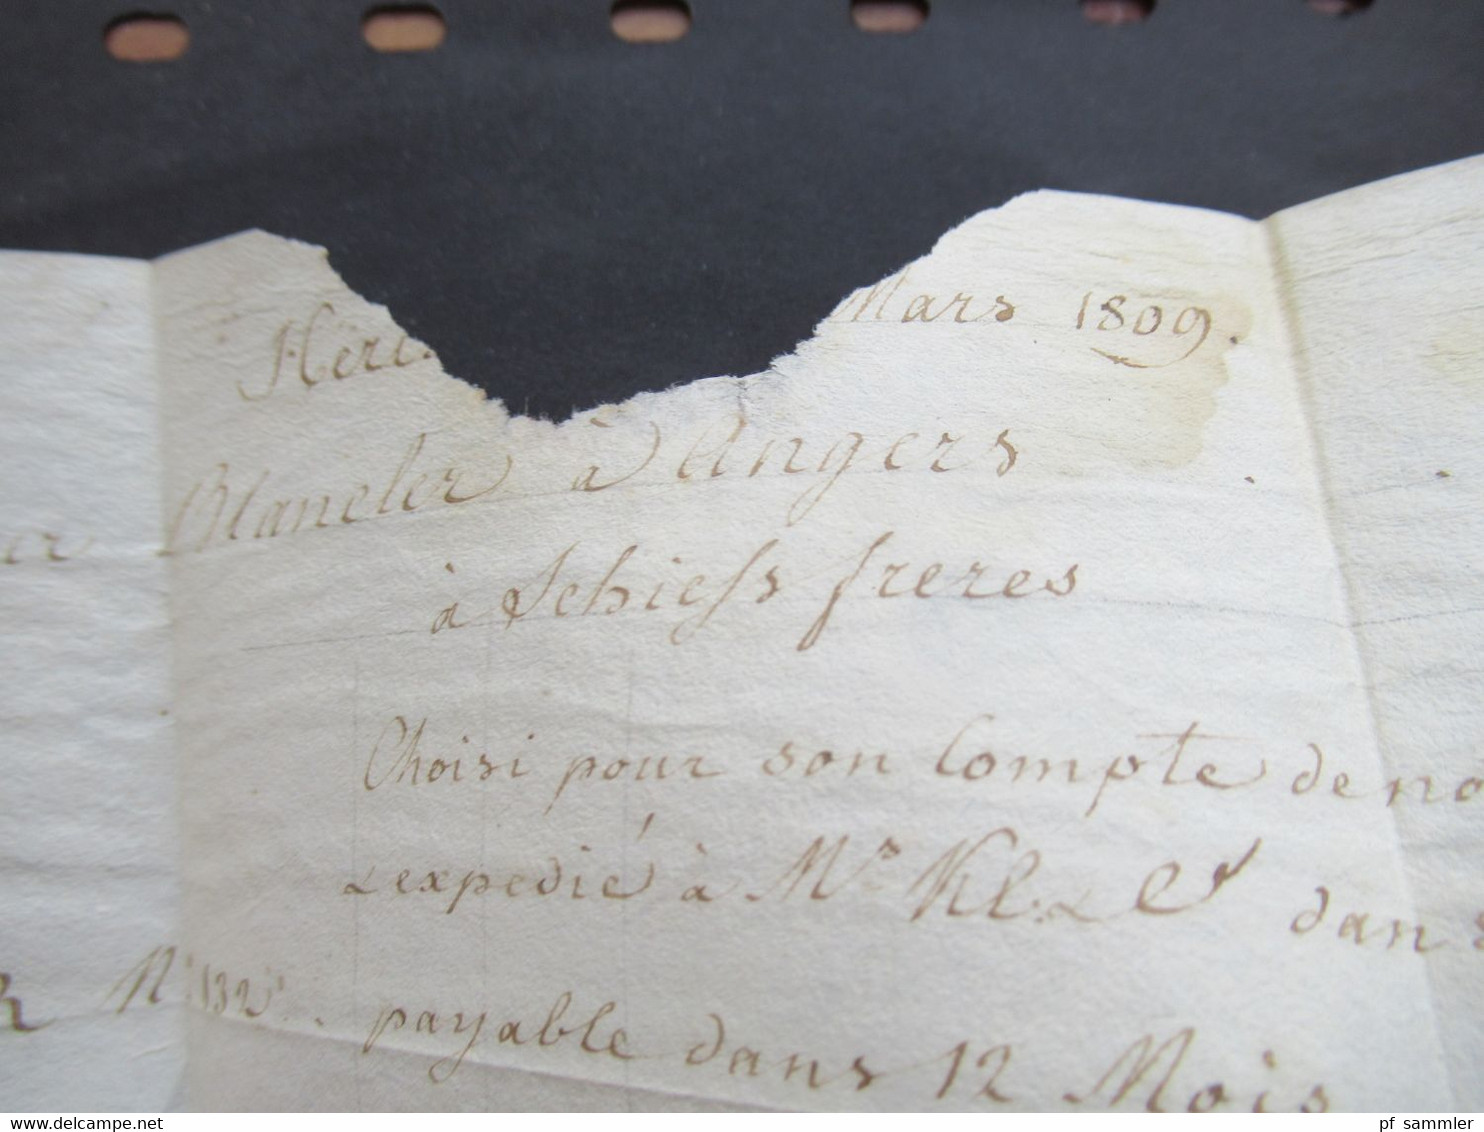 Mars 1809.
Blancler à Angers
à Schiess freres
Choisi pour son Compte de no
& expedié à Mr. Kl. & C dans
N. 132. payable dans 12 Mois
pf_sammler